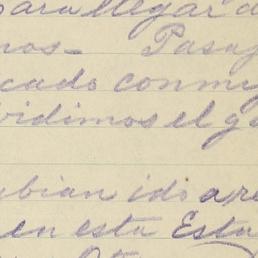 para llegar a
mos - Pasa
cado conm
vidimos el g
bian ido a re
en esta Esta